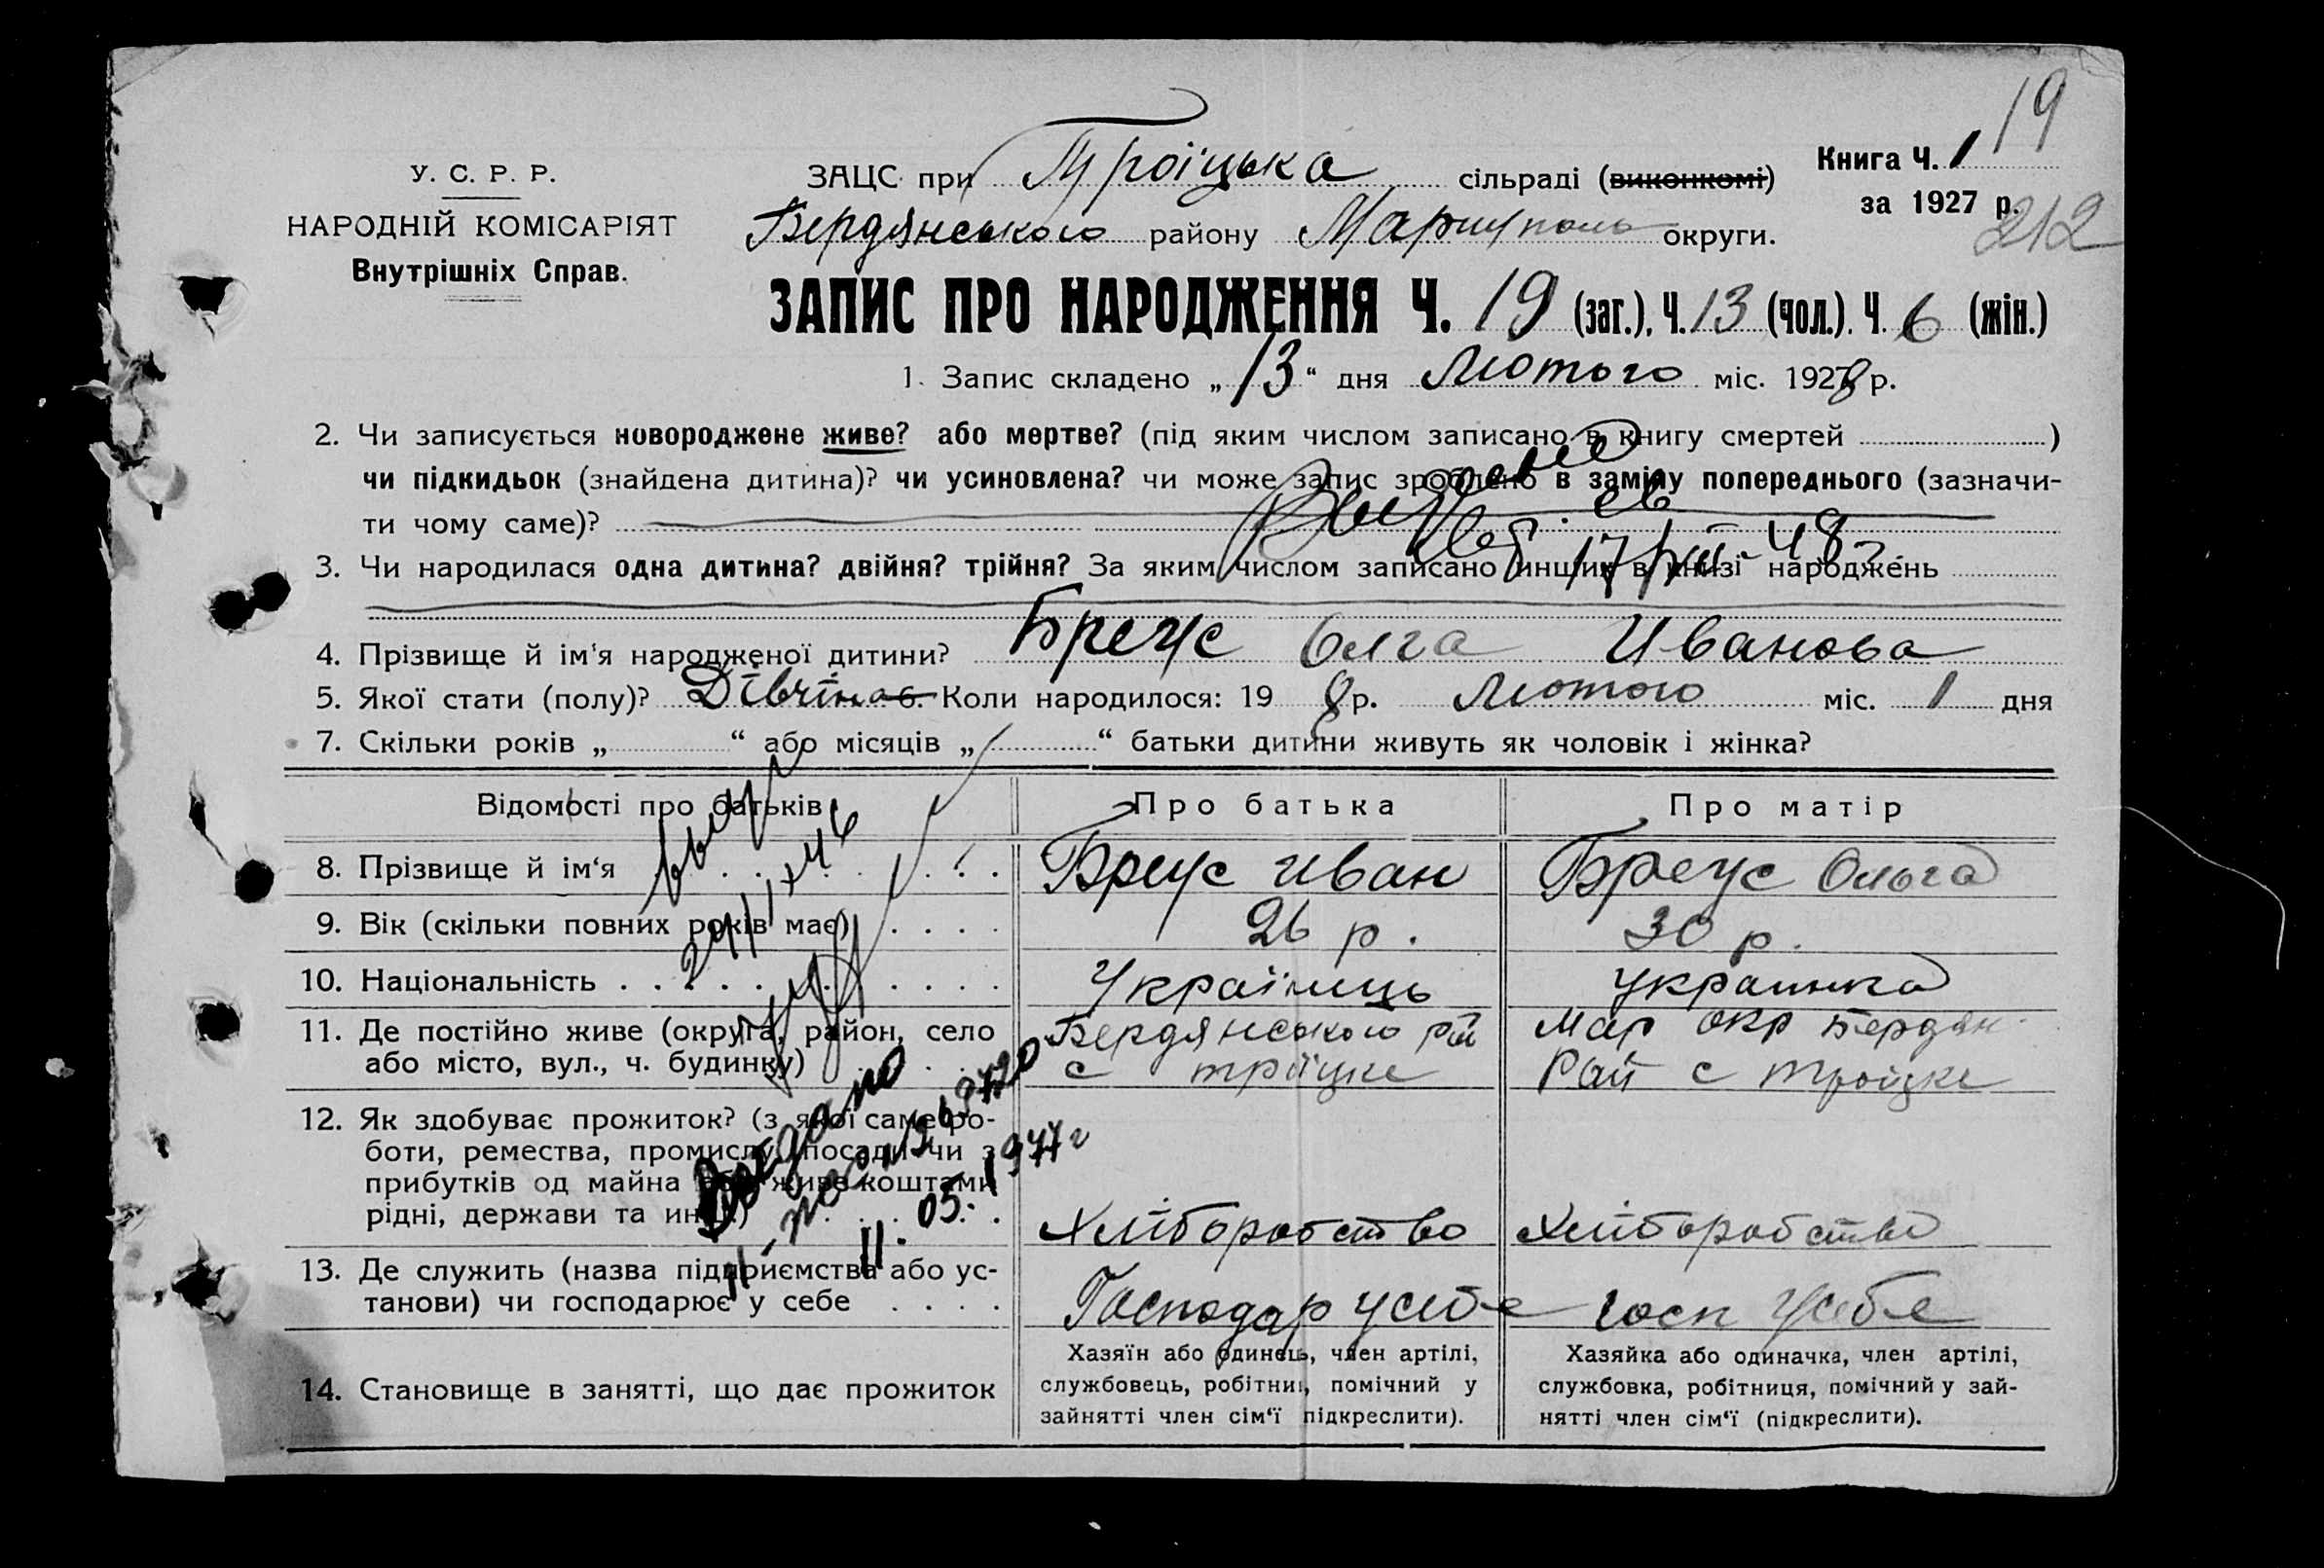 19
У. С. Р. Р.
НАРОДНІЙ КОМІСАРІЯТ
Внутрішніх Справ.
ЗАЦС при Троіцька сільраді (виконкомі)
Книга Ч. 1
за 1927 р.
212
Бердянського району Мариуполь округи.
ЗАПИС ПРО НАРОДЖЕННЯ Ч. 19 (заг.), Ч. 13 (чол.). Ч. 6 (жін.)
1. Запис складено „13“ дня Лютого міс. 1928 р.
2. Чи записується новороджене живе? або мертве? (під яким числом записано в книгу смертей )
чи підкидьок (знайдена дитина)? чи усиновлена? чи може запис зроблено в заміну попереднього (зазначи-
ти чому саме)?
3. Чи народилася одна дитина? двійня? трійня? За яким числом записано инших в книзі народжень
4. Прізвище й ім'я народженої дитини? Бреус Олга Иванова
5. Якої стати (полу)? Дівчіна 6. Коли народилося: 19 8 р. Лютого міс. 1 дня
7. Скільки років „ “ або місяців „ “ батьки дитини живуть як чоловік і жінка?
Відомості про батьків
Про батька
Про матір
8. Прізвище й ім‘я
Бреус Иван
Бреус Ольга
9. Вік (скільки повних років має)
26 р.
30 р.
10. Національність
Українець
украинка
11. Де постійно живе (округа, район, село
або місто, вул., ч. будинку)
Бердянського рай
с троїцке
Мар окр Бердян
Рай с Троицке
12. Як здобуває прожиток? (з якої саме ро-
боти, ремества, промислу, посади чи з
прибутків од майна або живе коштами
рідні, держави та инш.)
Хліборобство
Хліборобство
13. Де служить (назва підприємства або ус-
танови) чи господарює у себе
Господар у себе
госп у себе
14. Становище в занятті, що дає прожиток
Хазяїн або одинець, член артілі,
службовець, робітник, помічний у
зайнятті член сім‘ї підкреслити).
Хазяйка або одиначка, член артілі,
службовка, робітниця, помічний у зай-
нятті член сім‘ї (підкреслити).
11. 05. 1977 г